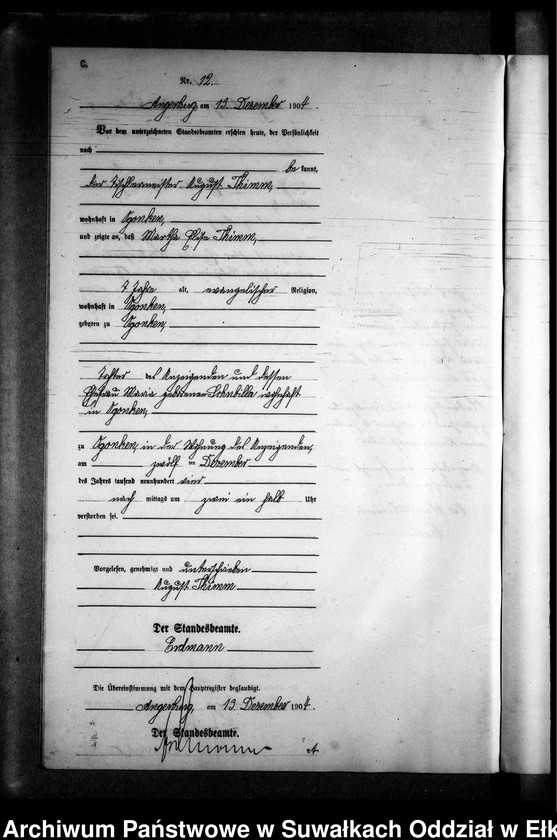 C.
Nr. 12.
Angerburg am 13. Dezember 1904.
Vor dem unterzeichneten Standesbeamten erschien heute, der Persönlichkeit
nach
be kannt,
der Tischlermeister August Thimm,
wohnhaft in Ogonken,
und zeigte an, daß Martha Elise Thimm,
4 Jahre alt, evangelischer Religion,
wohnhaft in Ogonken,
geboren zu Ogonken,
Tochter des Anzeigenden und dessen
Ehefrau Maria geborenen wohnhaft
in Ogonken,
zu Ogonken, in der Wohnung des Anzeigenden,
am zwölf ten Dezember
des Jahres tausend neunhundert vier
nach mittags um zwei ein halb Uhr
verstorben sei.
Vorgelesen, genehmigt und unterschrieben
August Thimm
Der Standesbeamte.
Erdmann
Die Übereinstimmung mit dem Hauptregister beglaubigt.
Angerburg, am 13. Dezember 1904.
Der Standesbeamte.
Erdmann
Archiwum Państwowe w Suwałkach Oddział w Ełk